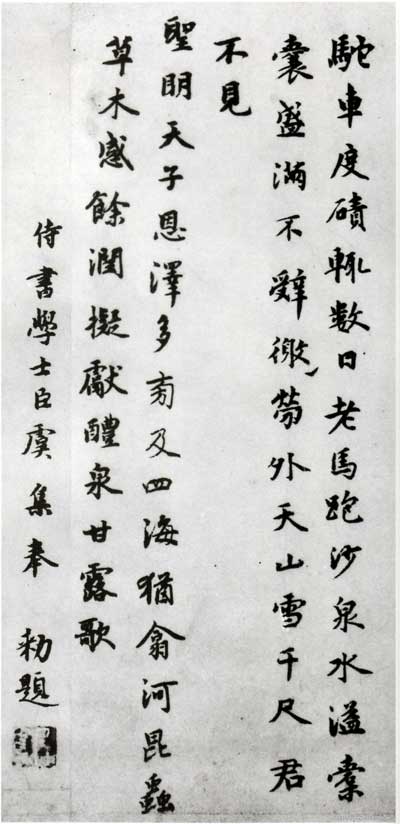 駞車度磧輒數日老馬跑沙泉水溢橐
囊盛滿不辭徼勞外天山雪千尺君
不見
聖明天子恩澤多旁及四海猶翕河昆蟲
草木感餘潤擬獻醴泉甘露歌
侍書學士臣虞集奉 勑題